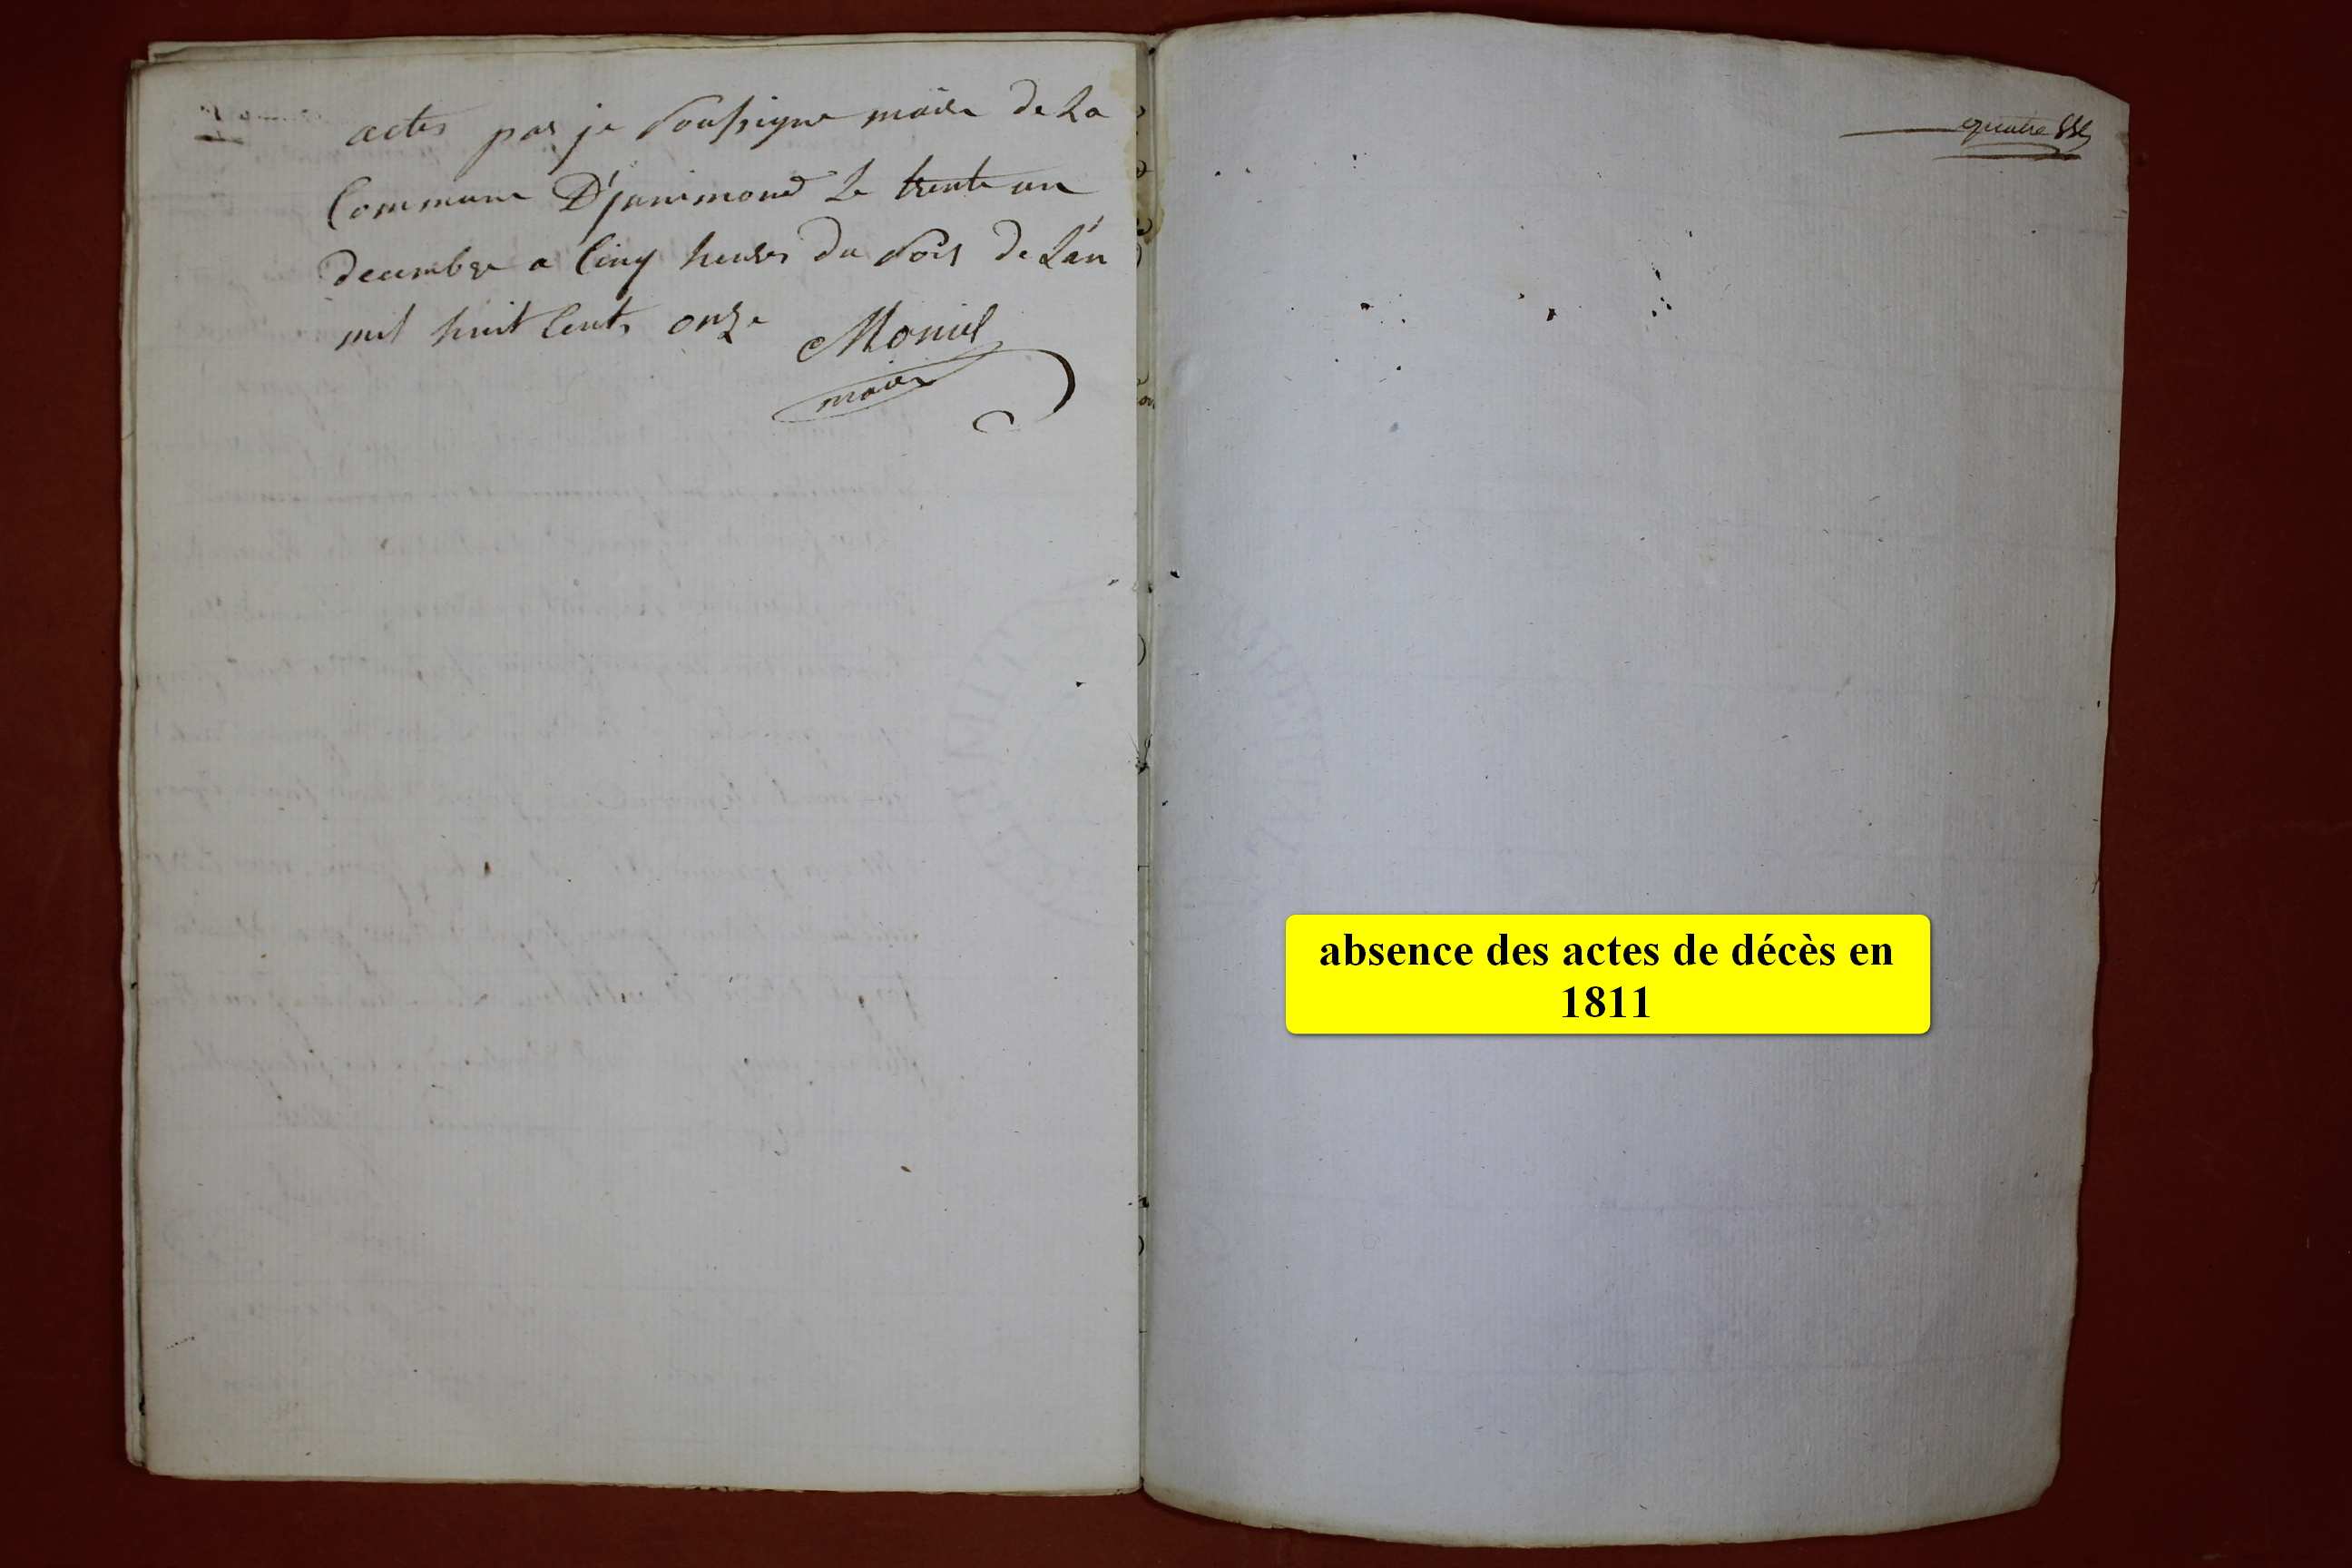 actes par je soussigne maire de La
Commune D'junimond Le trente un
decembre a Cinq heures du soir de L'an
mil huit Cents onze Moniel
maire
quatre
absence des actes de décès en
1811